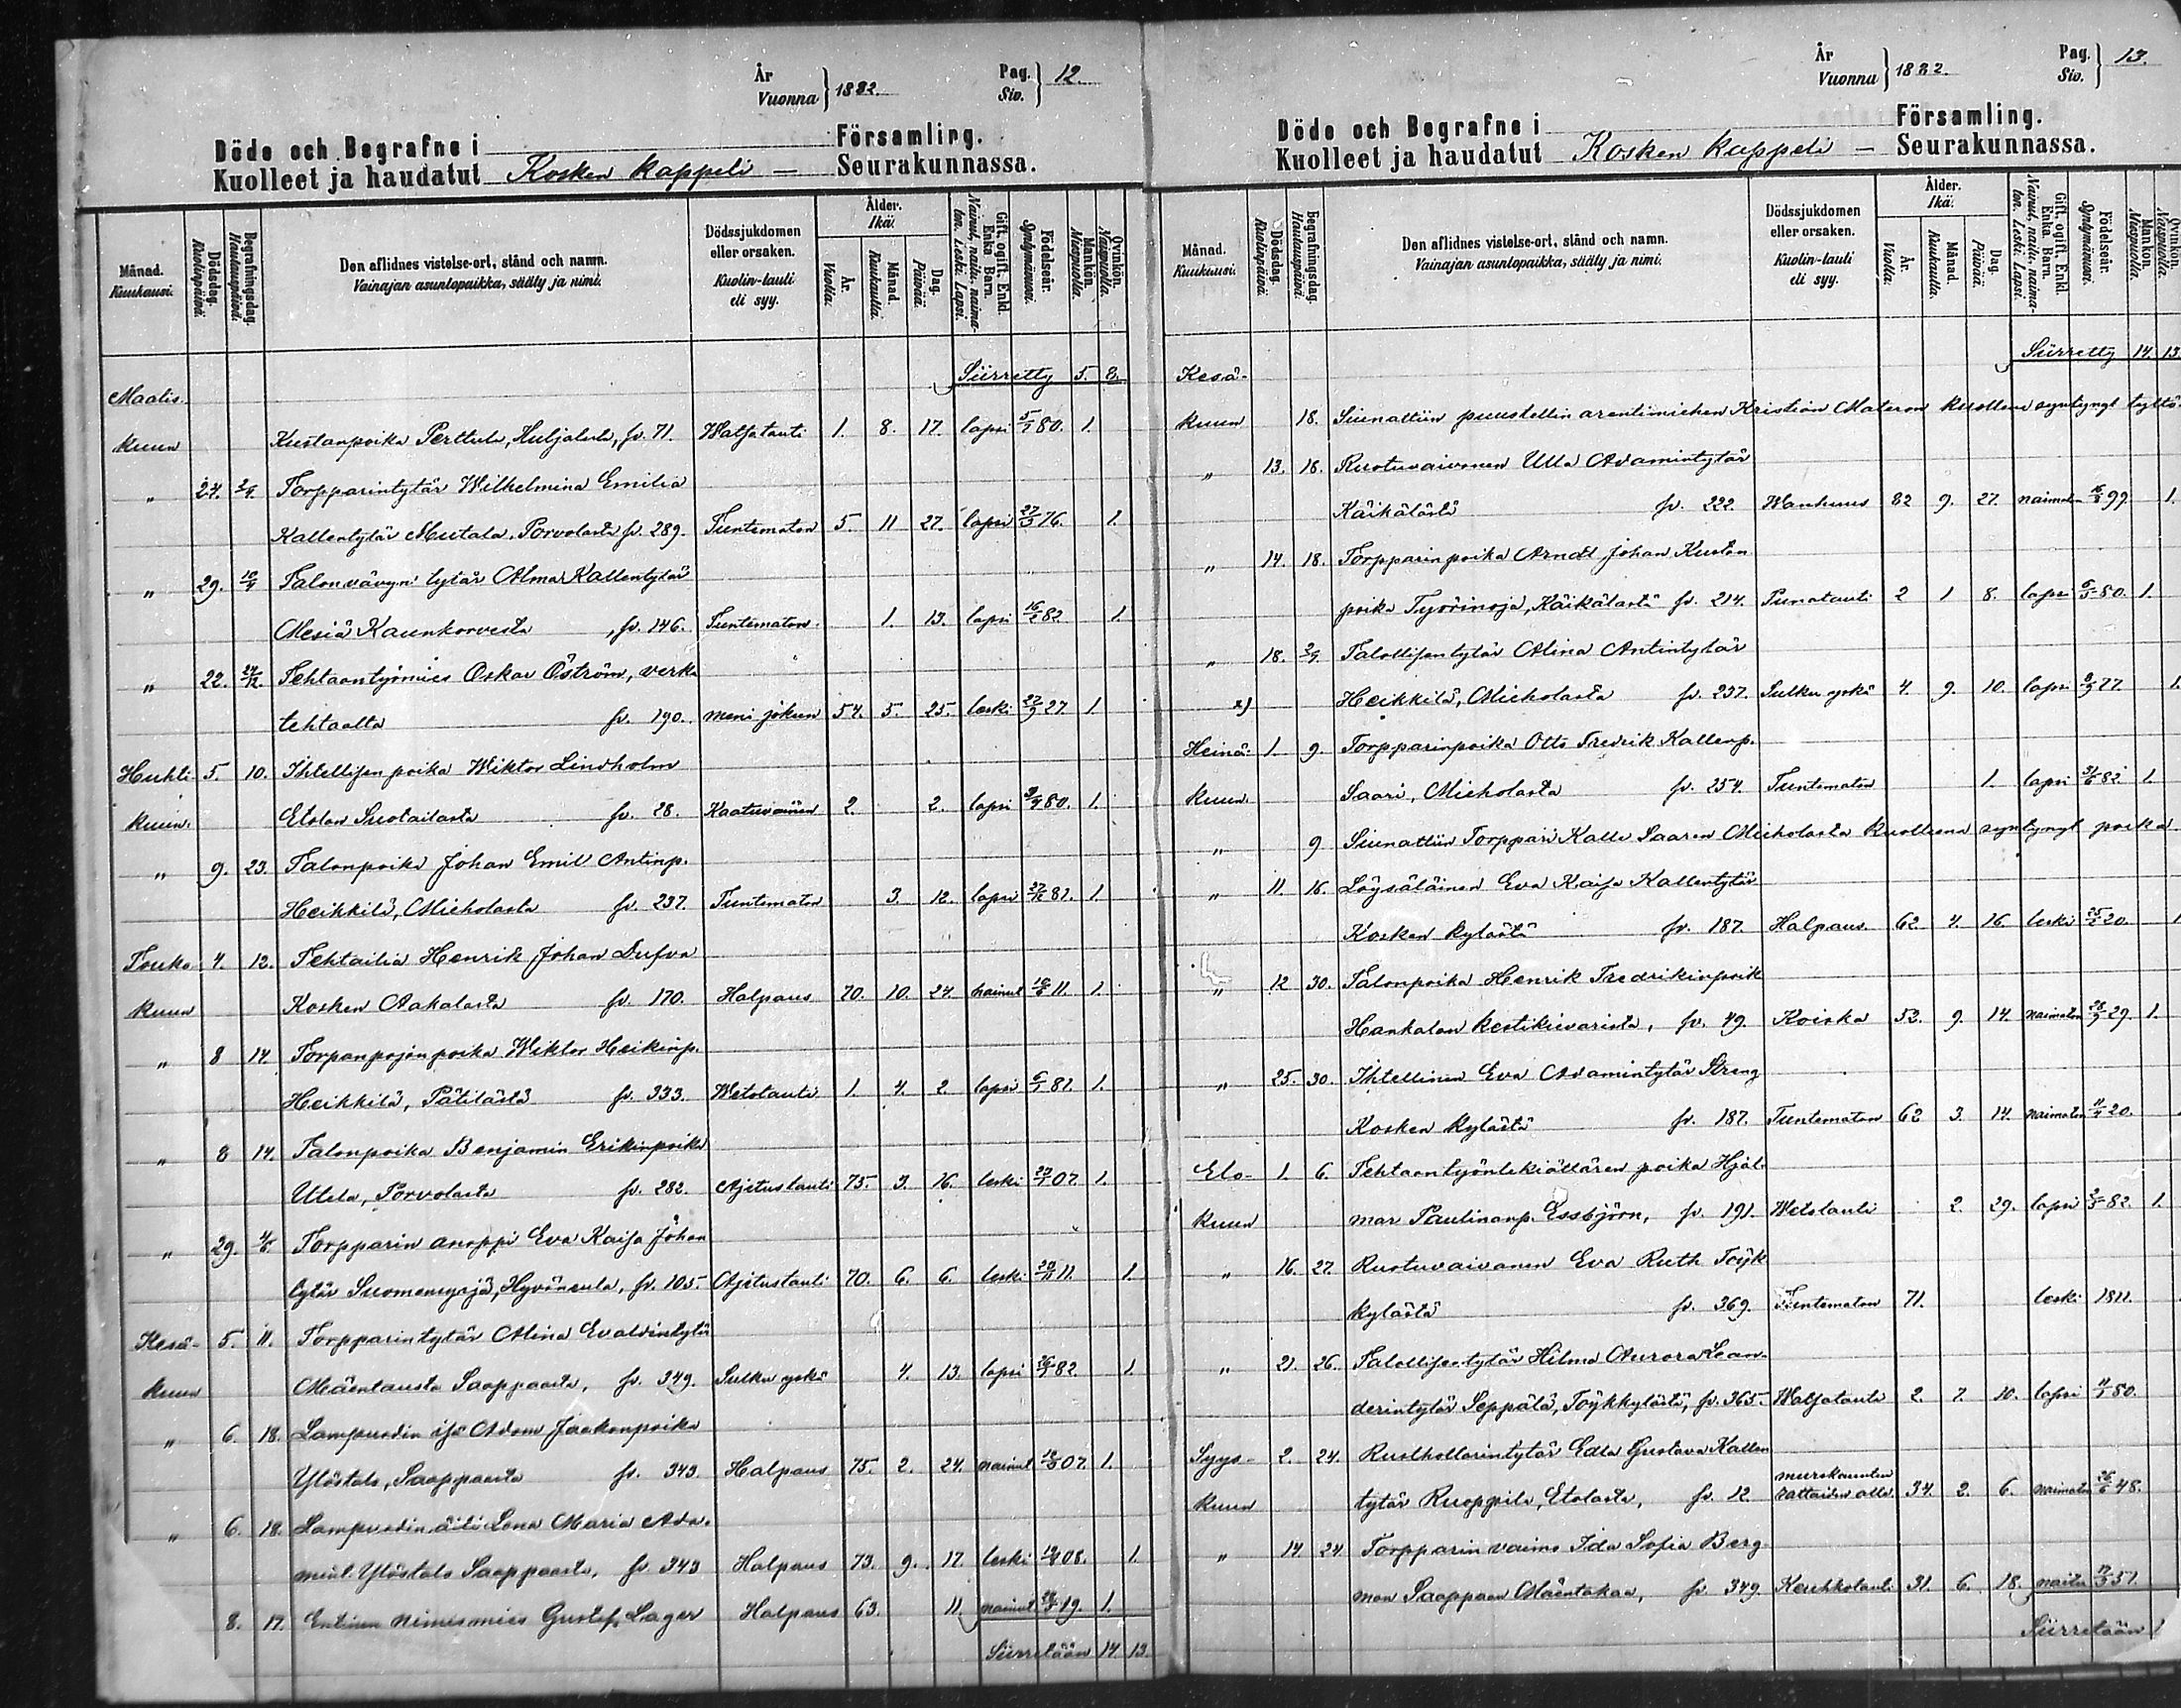 År
Vuonna } 1882.
Pag.
Siv. } 12.
Döde och Begrafne i Församling.
Kuolleet ja haudatut Kosken kappeli — Seurakunnassa.
Månad. Kuukausi.
Dödsdag. Kuolinpäivä.
Begrafningsdag. Hautauspäivä.
Den aflidnes vistelse-ort, stånd och namn.
Vainajan asuntopaikka, sääty ja nimi.
Dödssjukdomen eller orsaken.
Kuolin-tauti eli syy.
Ålder. Ikä.
År. Vuotta.
Månad. Kuukautta.
Dag. Päivää.
Gift, ogift, Enkl. Enka. Barn.
Nainut, naitu, naimaton. Leski. Lapsi.
Födelseår. Syntymävuosi.
Mankön. Miespuolia.
Qvinkön. Naispuolia.
Siirretty 5. 8.
Maalis
kuun Kustanpoika Perttula, Huljalasta, fv. 71. Watsatauti 1. 8. 17. lapsi 5/7 80. 1.
" 24. 2/4 Torpparintytär Wilhelmina Emilia
Kallentytär Mutala, Porvolasta fv. 289. Tuntematon 5. 11 27. lapsi 27/3 76. 1.
" 29. 10/4 Talonvävyn tytär Alma Kallentytär
Mesiä Kaunkorvesta, fv. 146. Tuntematon. 1. 13. lapsi 16/2 82 1.
" 22. 24/12 Tehtaantyömies Oskar Öström, verka
tehtaalta fv. 190. meni jokeen 54. 5. 25. leski 27/9 27. 1.
Huhti 5 10. Ihtellisen poika Wiktor Lindholm
kuun. Etolan Suotailasta fv. 28. Kaatuvainen 2. 2. lapsi 3/4 80. 1.
" 9. 23. Talonpoika Johan Emil Antinp.
Heikkilä, Mieholasta fv. 237. Tuntematon 3. 12. lapsi 27/12 81. 1.
Touko 4. 12. Tehtailia Henrik Johan Dufva
kuun Kosken Aakalasta fv. 170. Halpaus 70. 10. 24. nainut 10/6 11. 1.
" 8 14. Torpanpojan poika Wiktor Heikinp.
Heikkilä, Pätilästä fv. 333. Wetotauti 1. 4. 2. lapsi 6/1 81. 1.
" 8 14. Talonpoika Benjamin Erikinpoika
Utela, Porvolasta fv. 282. Ajetustauti 75. 3. 16. leski 22/1 07. 1.
" 29. 4/6 Torpparin anoppi Eva Kaisa Johan
tytär Suomenysjä, Hyvöneula, fv. 105. Ajetustauti 70. 6. 6. leski 23/11 11. 1.
Kesä- 5. 11. Torpparintytär Alina Evaldintytär
kuun Mäentausta Saappaasta, fv. 349. Sulku yskä 4. 13. lapsi 26/1 82 1.
" 6. 18. Lampuodin isä Adam Jaakonpoika
Ylöstalo, Saappaasta fv. 343. Halpaus 75. 2. 24. nainut 12/3 07. 1.
" 6. 18. Lampuodin äiti Lena Maria Ada-
mint. Ylöstalo Saappaasta, fv 343 Halpaus 73. 9. 17. leski 19/8 08. 1.
8. 17. Entinen nimismies Gustaf Lager Halpaus 63. 11. nainut 28/5 19. 1.
Siirretään 14 13.
År
Vuonna } 1882.
Pag.
Siv. } 13.
Döde och Begrafne i Församling.
Kuolleet ja haudatut Kosken kappeli — Seurakunnassa.
Månad. Kuukausi.
Dödsdag. Kuolinpäivä.
Begrafningsdag. Hautauspäivä.
Den aflidnes vistelse-ort, stånd och namn.
Vainajan asuntopaikka, sääty ja nimi.
Dödssjukdomen eller orsaken.
Kuolin-tauti eli syy.
Ålder. Ikä.
År. Vuotta.
Månad. Kuukautta.
Dag. Päivää.
Gift, ogift, Enkl. Enka. Barn.
Nainut, naitu, naimaton. Leski. Lapsi.
Födelseår. Syntymävuosi.
Mankön. Miespuolia.
Qvinkön. Naispuolia.
Siirretty 14. 13
Kesä-
kuun 18. Siunattiin puustellin arentimiehen Kristian Materon kuollena syntynyt tyttö
" 13. 18. Ruotuvaivanen Ulla Adamintytär
Käikälästä fv. 222. Wanhuus 82 9. 27. naimaton 16/8 99. 1.
" 14. 18. Torpparinpoika Arndt Johan Kustan
poika Työrinoja, Käikälästä fv. 214. Punatauti 2 1 8. lapsi 6/5 80. 1.
" 18. 2/7 Talollisen tytär Alina Antintytär
x) Heikkilä, Mieholasta fv. 237. Sulku yskä 4. 9. 10. lapsi 8/9 77. 1.
Heinä- 1. 9. Torpparinpoika Otto Fredrik Kallenp.
kuun. Saari, Mieholasta fv. 254. Tuntematon 1. lapsi 31/6 82. 1
" 9 Siunattiin Torppari Kalle Saaren Mieholasta kuolleena syntynyt poika
" 11. 16. Löysäläinen Eva Kaisa Kallentytär
Kosken kylästä fv. 187. Halpaus. 62. 4. 16. leski 25/2 20. 1
" 12 30. Talonpoika Henrik Fredrikinpoik
Hankalan kestikievarista, fv. 49. Koiska 52. 9. 14. naimaton 28/9 29. 1.
" 25. 30. Ihtellinen Eva Adamintytär Streng
Kosken kylästä fv. 187. Tuntematon 62 3. 14. naimaton 11/4 20.
Elo- 1. 6. Tehtaantyöntekiättären poika Hjal-
kuun mar Paulinanp. Essbjörn, fv. 191. Wetotauti 2. 29. lapsi 2/5 82. 1.
" 16. 27. Ruotuvaivanen Eva Ruth Toyk
kylästä fv. 369. Tuntematon 71. leski 1811.
" 21. 26. Talollisentytär Hilma Aurora Lean-
derintytär Seppälä, Töykkylästä, fv. 365. Watsatauti 2. 7. 10. lapsi 11/1 80.
Syys- 2. 24. Rusthollarintytär Edla Gustava Kallen
kuun tytär Ruoppila, Etolasta, fv. 12. rattaiden alla. 34. 2. 6. naimaton 26/6 48.
" 14 24 Torpparin vaimo Ida Sofia Berg
man Saappaan Mäentakaa, fv. 349. Keuhkotauti 31. 6. 18. naitu 51.
Siirretään 1